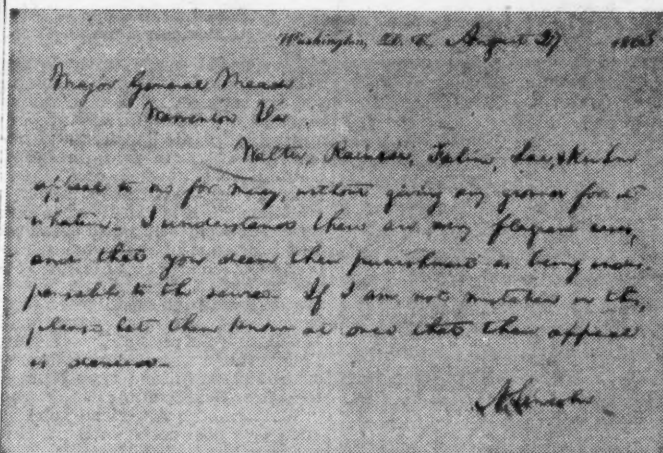 Washington, D. C., August 27 1863
Major General Meade
Warrenton Va.
Walter, Rainese, Faline, Lae, & Kuhn
appeal to me for mercy, without giving any ground for it
whatever. I understand these are very flagrant cases,
and that you deem their punishment as being indis-
pensable to the service. If I am not mistaken in this,
please let them know at once that their appeal
is denied.
A. Lincoln